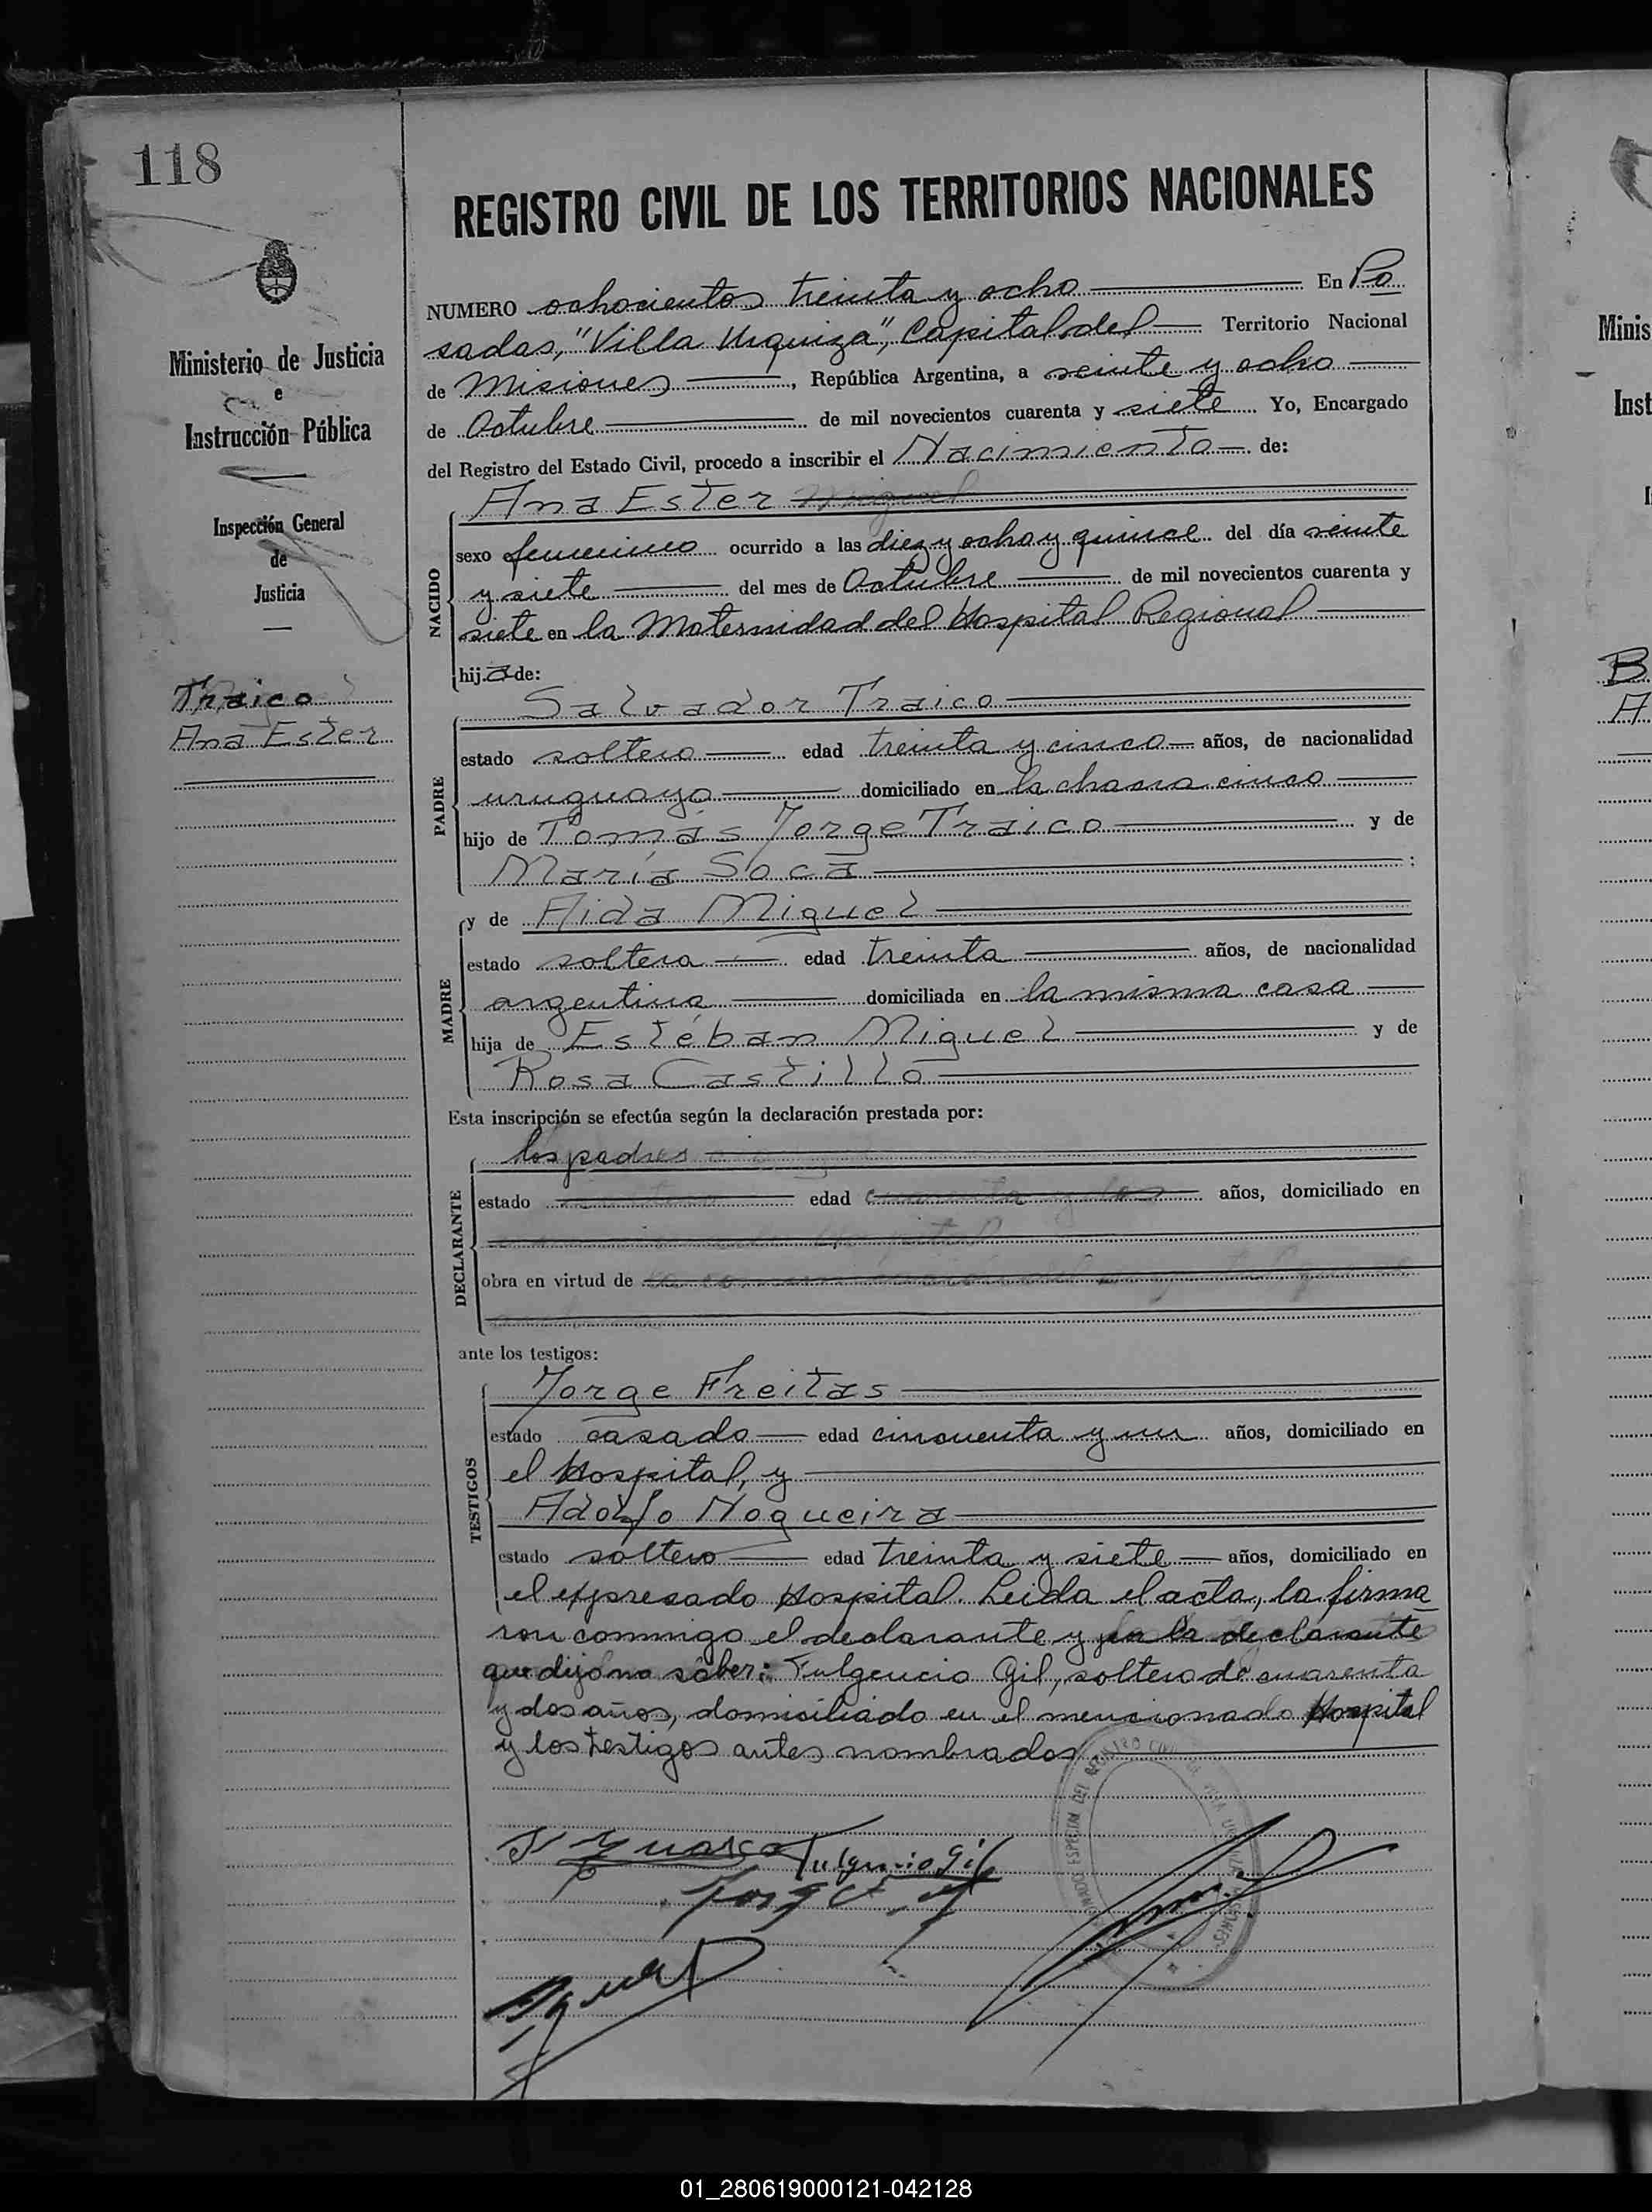 118
REGISTRO CIVIL DE LOS TERRITORIOS NACIONALES
Ministerio de Justicia
e
Instrucción Pública
Inspección General
de
Justicia
Traico
Ana Ester
NUMERO ochocientos treinta y ocho En Po
sadas, "Villa Urquiza", Capital del Territorio Nacional
de Misiones, República Argentina, a veinte y ocho
de Octubre de mil novecientos cuarenta y siete Yo, Encargado
del Registro del Estado Civil, procedo a inscribir el Nacimiento de:
NACIDO
Ana Ester Miguel
sexo femenino ocurrido a las diez y ocho y quince del día veinte
y siete del mes de Octubre de mil novecientos cuarenta y
siete en la Maternidad del Hospital Regional
hija de:
PADRE
Salvador Traico
estado soltero edad treinta y cinco años, de nacionalidad
uruguayo domiciliado en la chacra cinco
hijo de Tomás Jorge Traico y de
María Soca :
MADRE
y de Aida Miguel
estado soltera edad treinta años, de nacionalidad
argentina domiciliada en la misma casa
hija de Estéban Miguel y de
Rosa Castillo
Esta inscripción se efectúa según la declaración prestada por:
DECLARANTE
los padres
estado edad años, domiciliado en
obra en virtud de
ante los testigos:
TESTIGOS
Jorge Freitas
estado casado edad cincuenta y un años, domiciliado en
el Hospital, y
Adolfo Nogueira
estado soltero edad treinta y siete años, domiciliado en
el expresado Hospital. Leida el acta, la firma
ron conmigo el declarante y por la declarante
que dijo no saber: Fulgencio Gil, soltero de cuarenta
y dos años, domiciliado en el mencionado Hospital
y los testigos antes nombrados
Fulgencio Gil
Minis
Inst
B
A
01_280619000121-042128